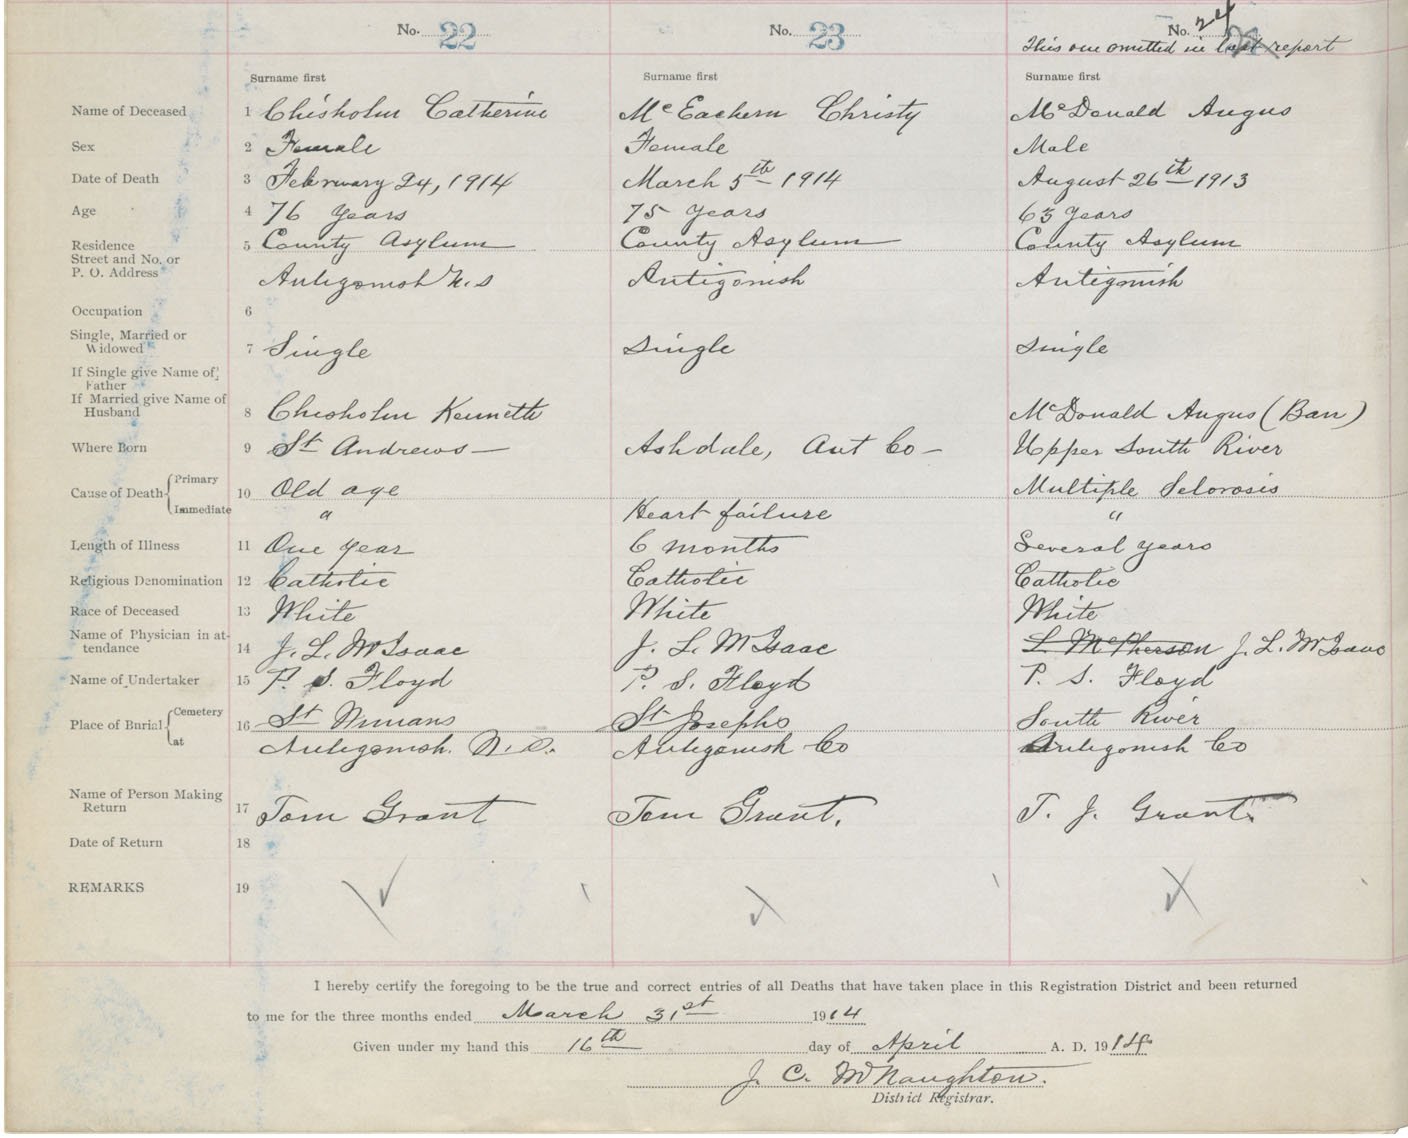 No. 22 No. 23 No. 24
This one omitted in last report
Surname first Surname first Surname first
Name of Deceased 1 Chisholm Catherine McEachern Christy McDonald Angus
Sex 2 Female Female Male
Date of Death 3 February 24, 1914 March 5th 1914 August 26th 1913
Age 4 76 Years 75 Years 63 Years
Residence 5 County Asylum County Asylum County Asylum
Street and No. or
P. O. Address Antigonish N.S Antigonish Antigonish
Occupation 6
Single, Married or
Widowed 7 Single Single Single
If Single give Name of
Father
If Married give Name of
Husband 8 Chisholm Kenneth McDonald Angus (Ban)
Where Born 9 St Andrews — Ashdale, Ant Co — Upper South River
Cause of Death { Primary 10 Old age Multiple Sclorosis
Immediate " Heart failure "
Length of Illness 11 One year 6 months Several years
Religious Denomination 12 Catholic Catholic Catholic
Race of Deceased 13 White White White
Name of Physician in at-
tendance 14 J. L. McIsaac J. L. McIsaac L. McPherson J. L. McIsaac
Name of Undertaker 15 P. S. Floyd P. S. Floyd P. S. Floyd
Place of Burial { Cemetery 16 St Ninians St Josephs South River
at Antigonish. N.S. Antigonish Co Antigonish Co
Name of Person Making
Return 17 Tom Grant Tom Grant. T. J. Grant.
Date of Return 18
REMARKS 19
I hereby certify the foregoing to be the true and correct entries of all Deaths that have taken place in this Registration District and been returned
to me for the three months ended March 31st 1914
Given under my hand this 16th day of April A. D. 1914
J. C. McNaughton.
District Registrar.